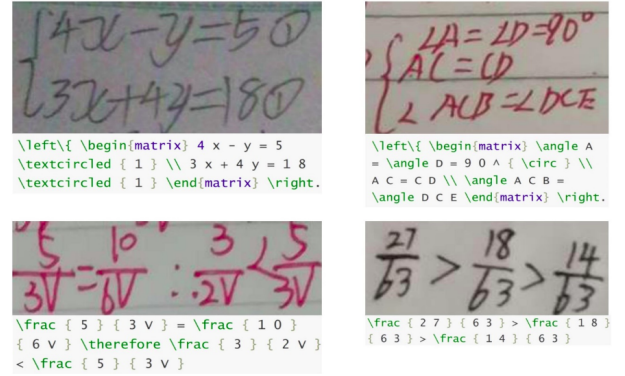 4x-y=5①
3x+4y=18①
\left\{ \begin{matrix} 4 x - y = 5
\textcircled { 1 } \\ 3 x + 4 y = 1 8
\textcircled { 1 } \end{matrix} \right.
∠A=∠D=90°
AC=CD
∠ACB=∠DCE
\left\{ \begin{matrix} \angle A
= \angle D = 9 0 ^ { \circ } \\
A C = C D \\ \angle A C B =
\angle D C E \end{matrix} \right.
5/3V=10/6V ∴ 3/2V<5/3V
\frac { 5 } { 3 V } = \frac { 1 0 }
{ 6 V } \therefore \frac { 3 } { 2 V }
< \frac { 5 } { 3 V }
27/63>18/63>14/63
\frac { 2 7 } { 6 3 } > \frac { 1 8 }
{ 6 3 } > \frac { 1 4 } { 6 3 }